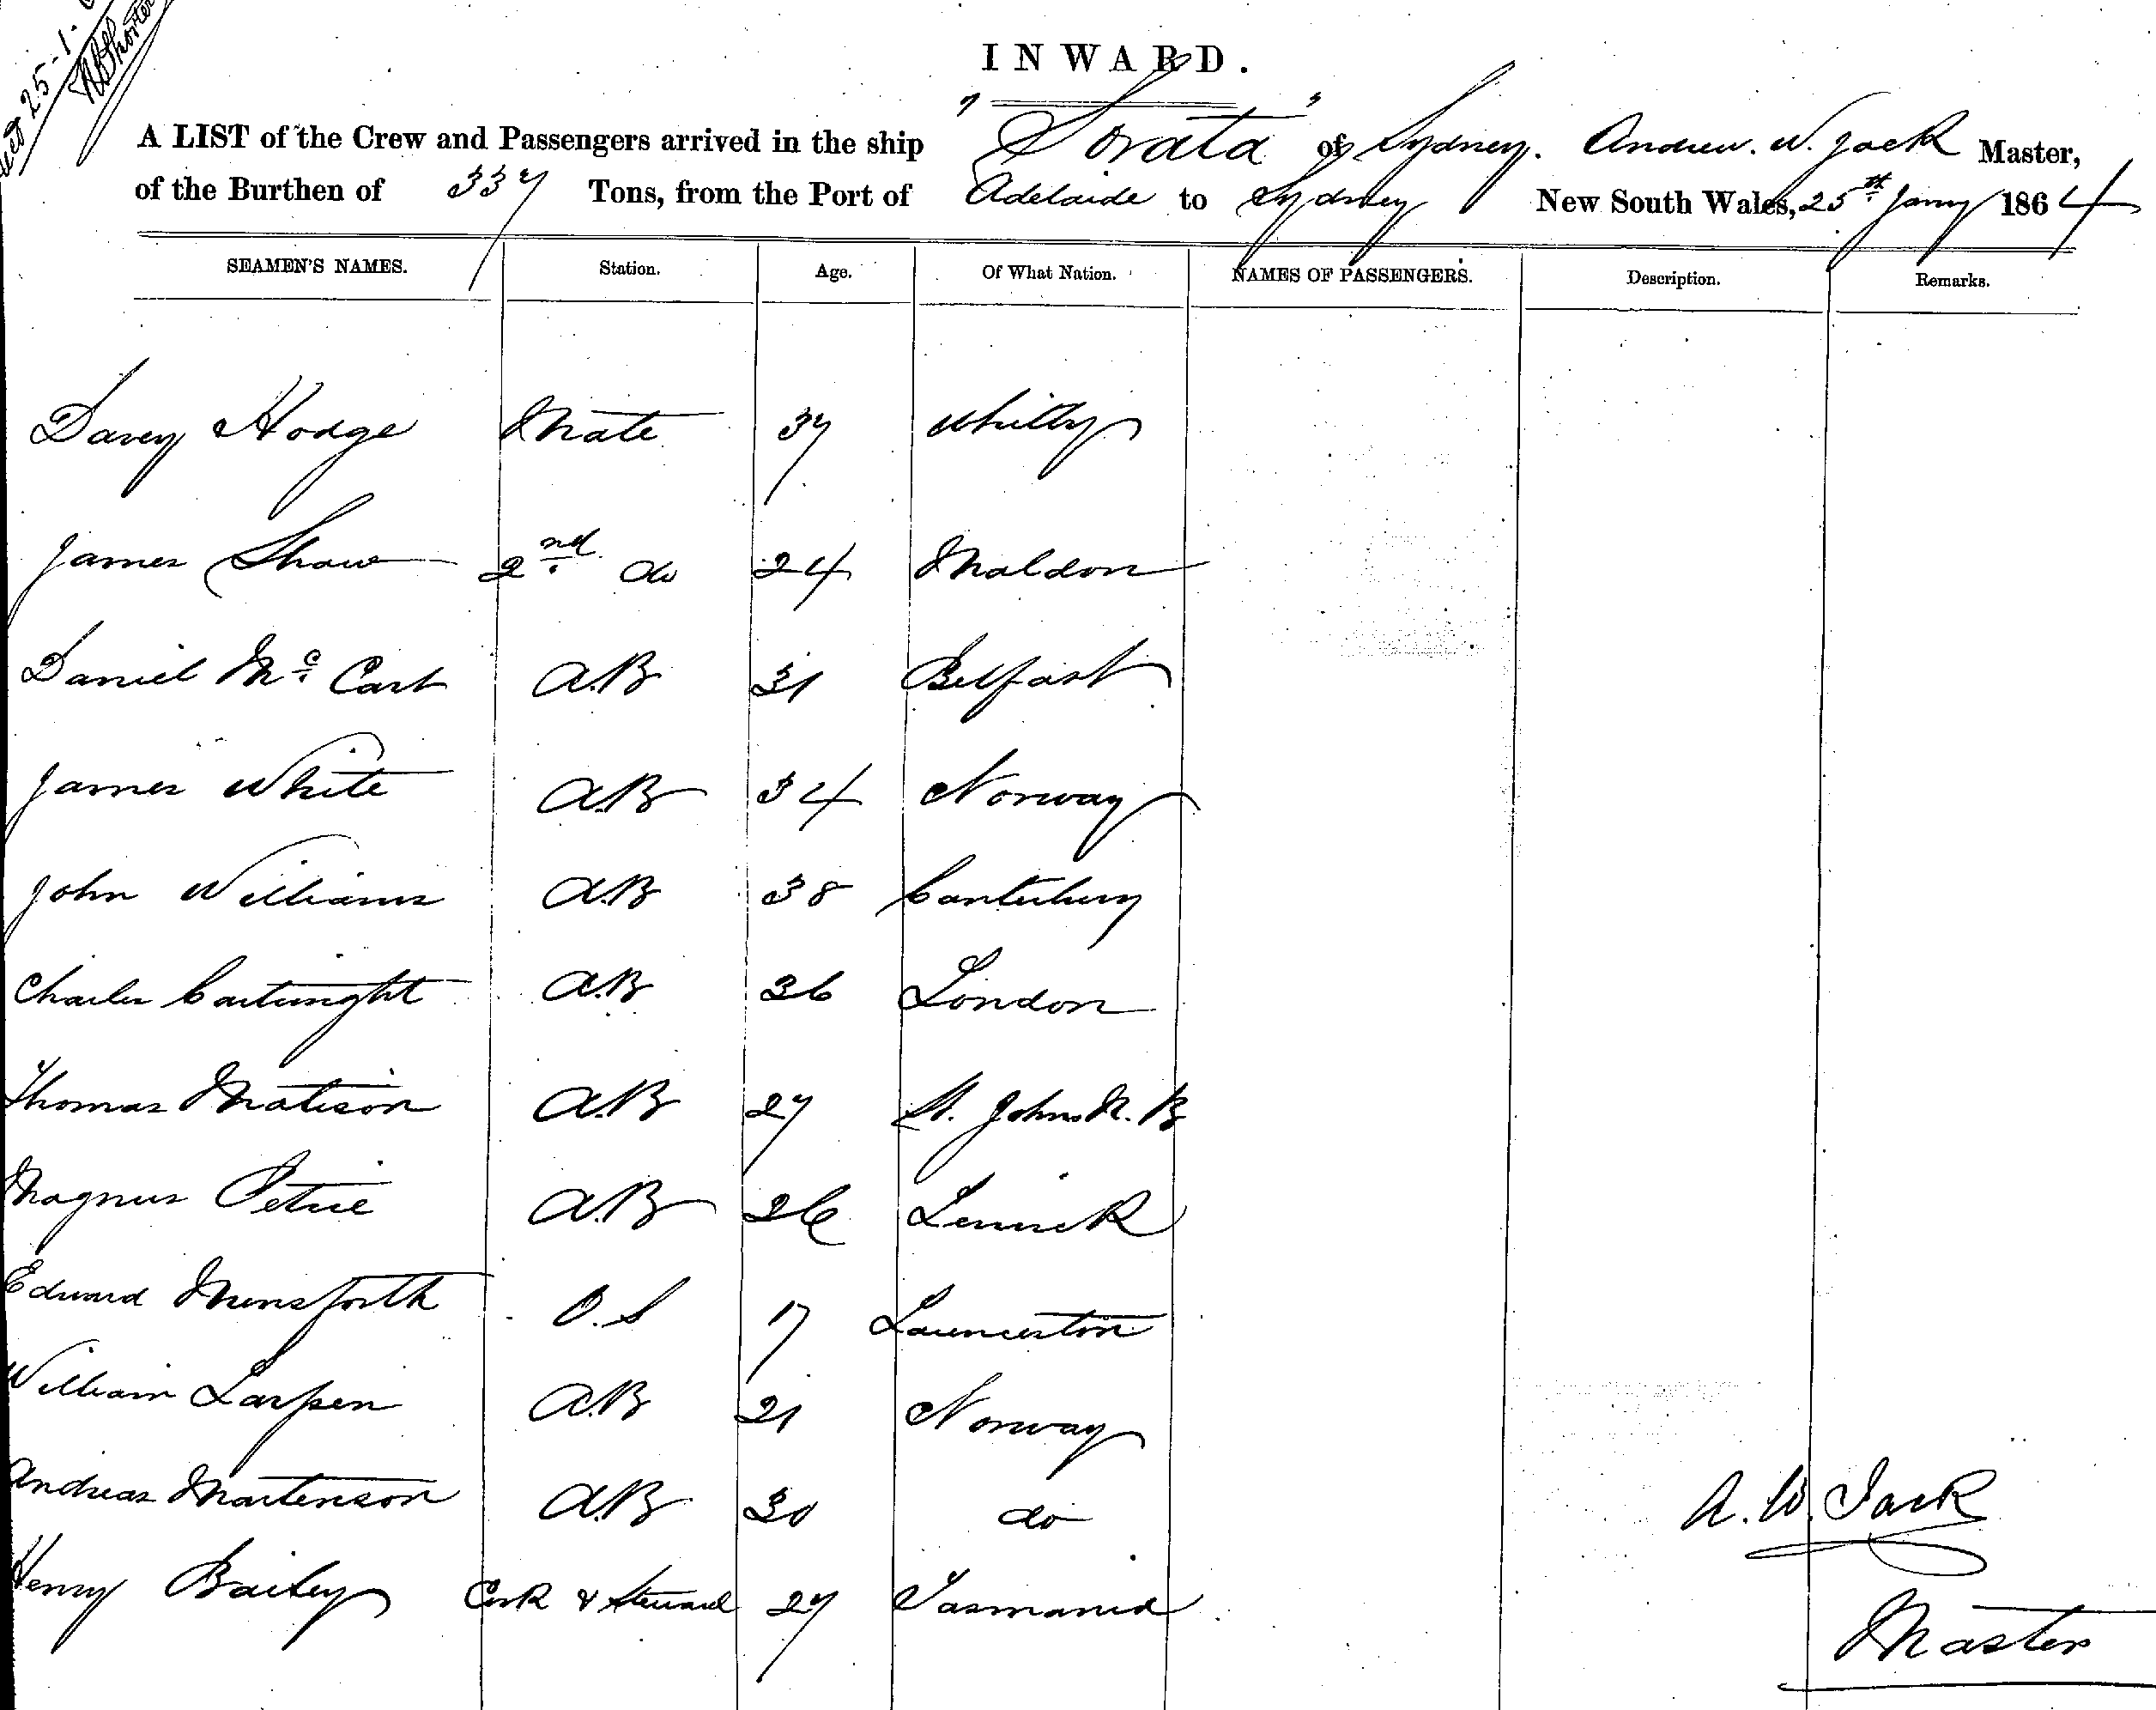 25-1-
INWARD.
A LIST of the Crew and Passengers arrived in the ship "Sorata" of Sydney. Andrew. W. Jack Master,
of the Burthen of 337 Tons, from the Port of Adelaide to Sydney New South Wales, 25th Jany 1864
SEAMEN'S NAMES. Station. Age. Of What Nation. NAMES OF PASSENGERS. Description. Remarks.
Davey Hodge Mate 37 Whitby
James Shaw 2nd do 24 Maldon
Daniel Mc Cart A.B 31 Belfast
James White A.B 34 Norway
John Williams A.B 38 Canterbury
Charles Cartwright A.B 36 London
Thomas Matison A.B 27 St. Johns N. B
Magnus Petrie A.B 26 Lerwick
Edward Munsforth O.S 17 Launceston
William Larssen A.B 21 Norway
Andreas Martenson A.B 30 do
Henry Bailey Cook & Steward 27 Tasmania
A. W. Jack
Master